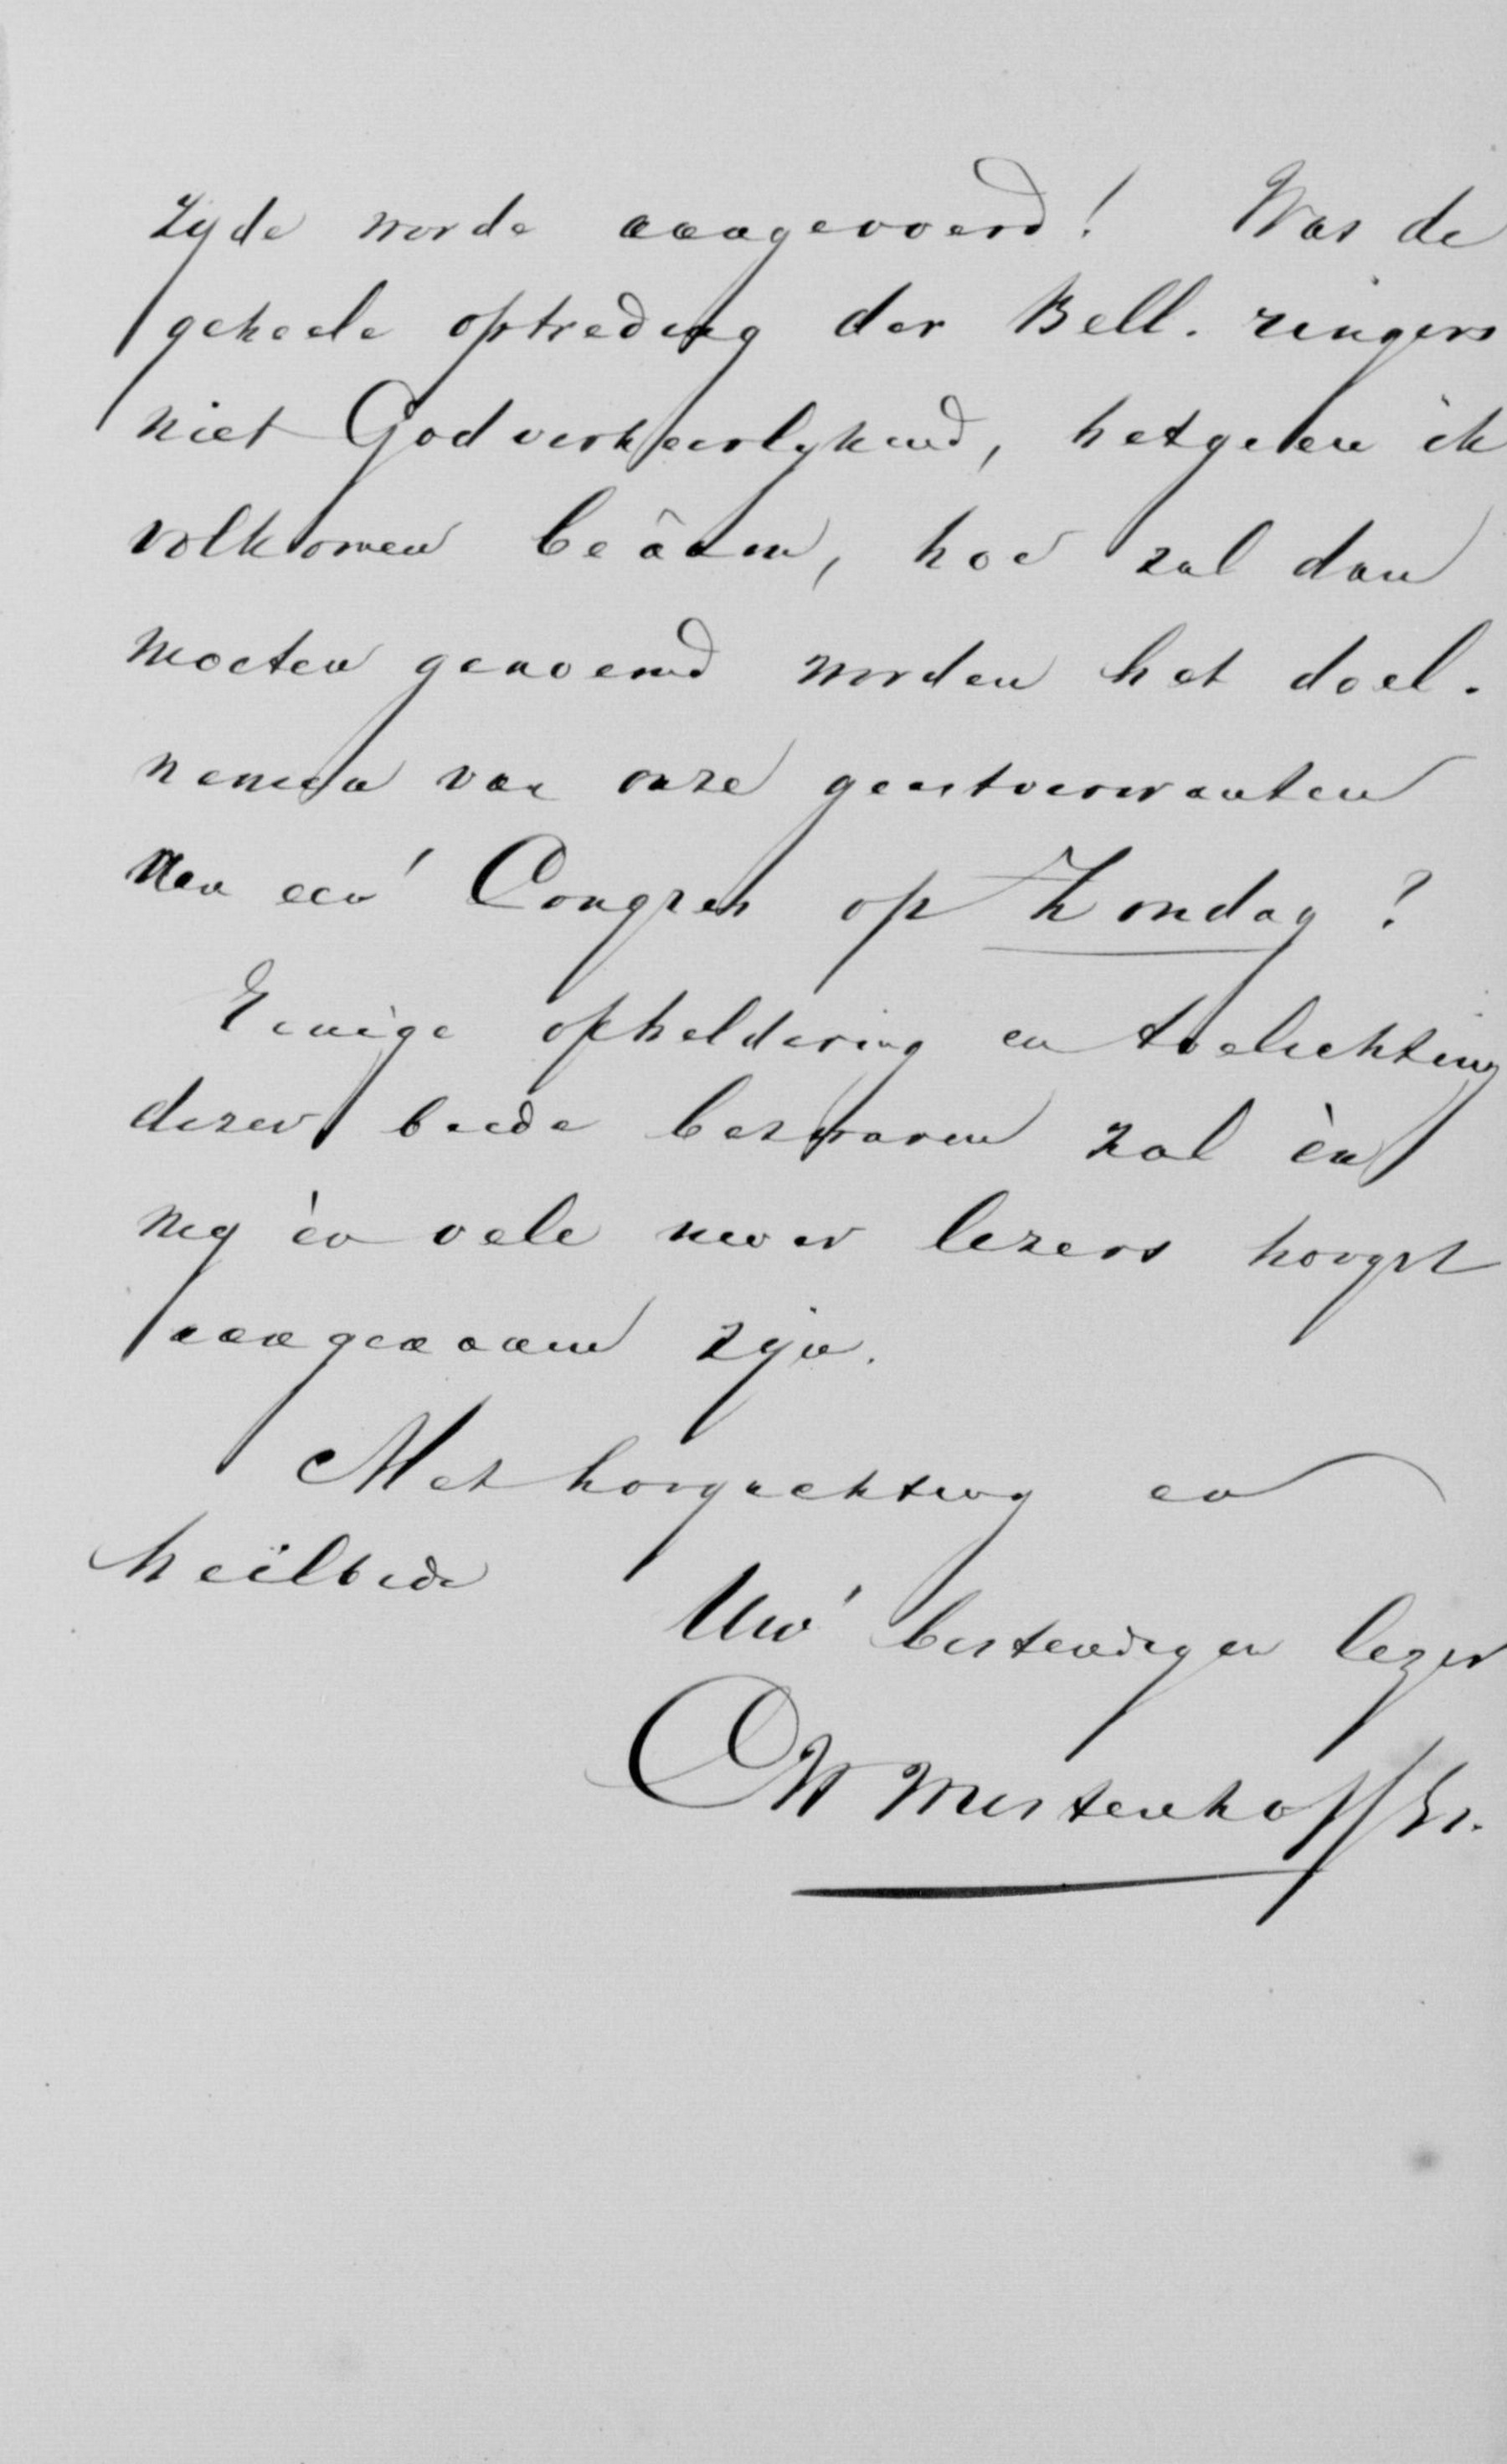 zyde worde aangevoerd! Was de
geheele optreding der Bell. ringers
niet Godverheerlykend, hetgeen ik
volkomen beâam, hoe zal dan
moeten genoemd worden het deel-
nemen van onze geestverwanten
aan een' Congres op Zondag?
Eenige opheldering en toelichting
dezer beide bezwaren zal èn
my èn vele uwer lezers hoogst
aangenaam zyn.
Met hoogachting en
heilbede
Uw' bestendigen lezer
CW Westenhoff Sr.